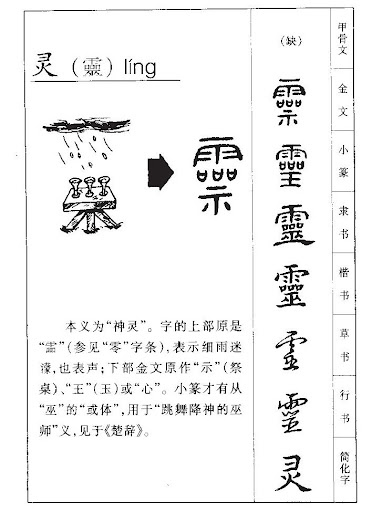 灵（靈）líng
本义为“神灵”。字的上部原是
“霝”（参见“零”字条），表示细雨迷
濛，也表声；下部金文原作“示”（祭
桌）、“王”（玉）或“心”。小篆才有从
“巫”的“或体”，用于“跳舞降神的巫
师”义，见于《楚辞》。
（缺）
靈
靈
靈
灵
甲骨文
金文
小篆
隶书
楷书
草书
行书
简化字